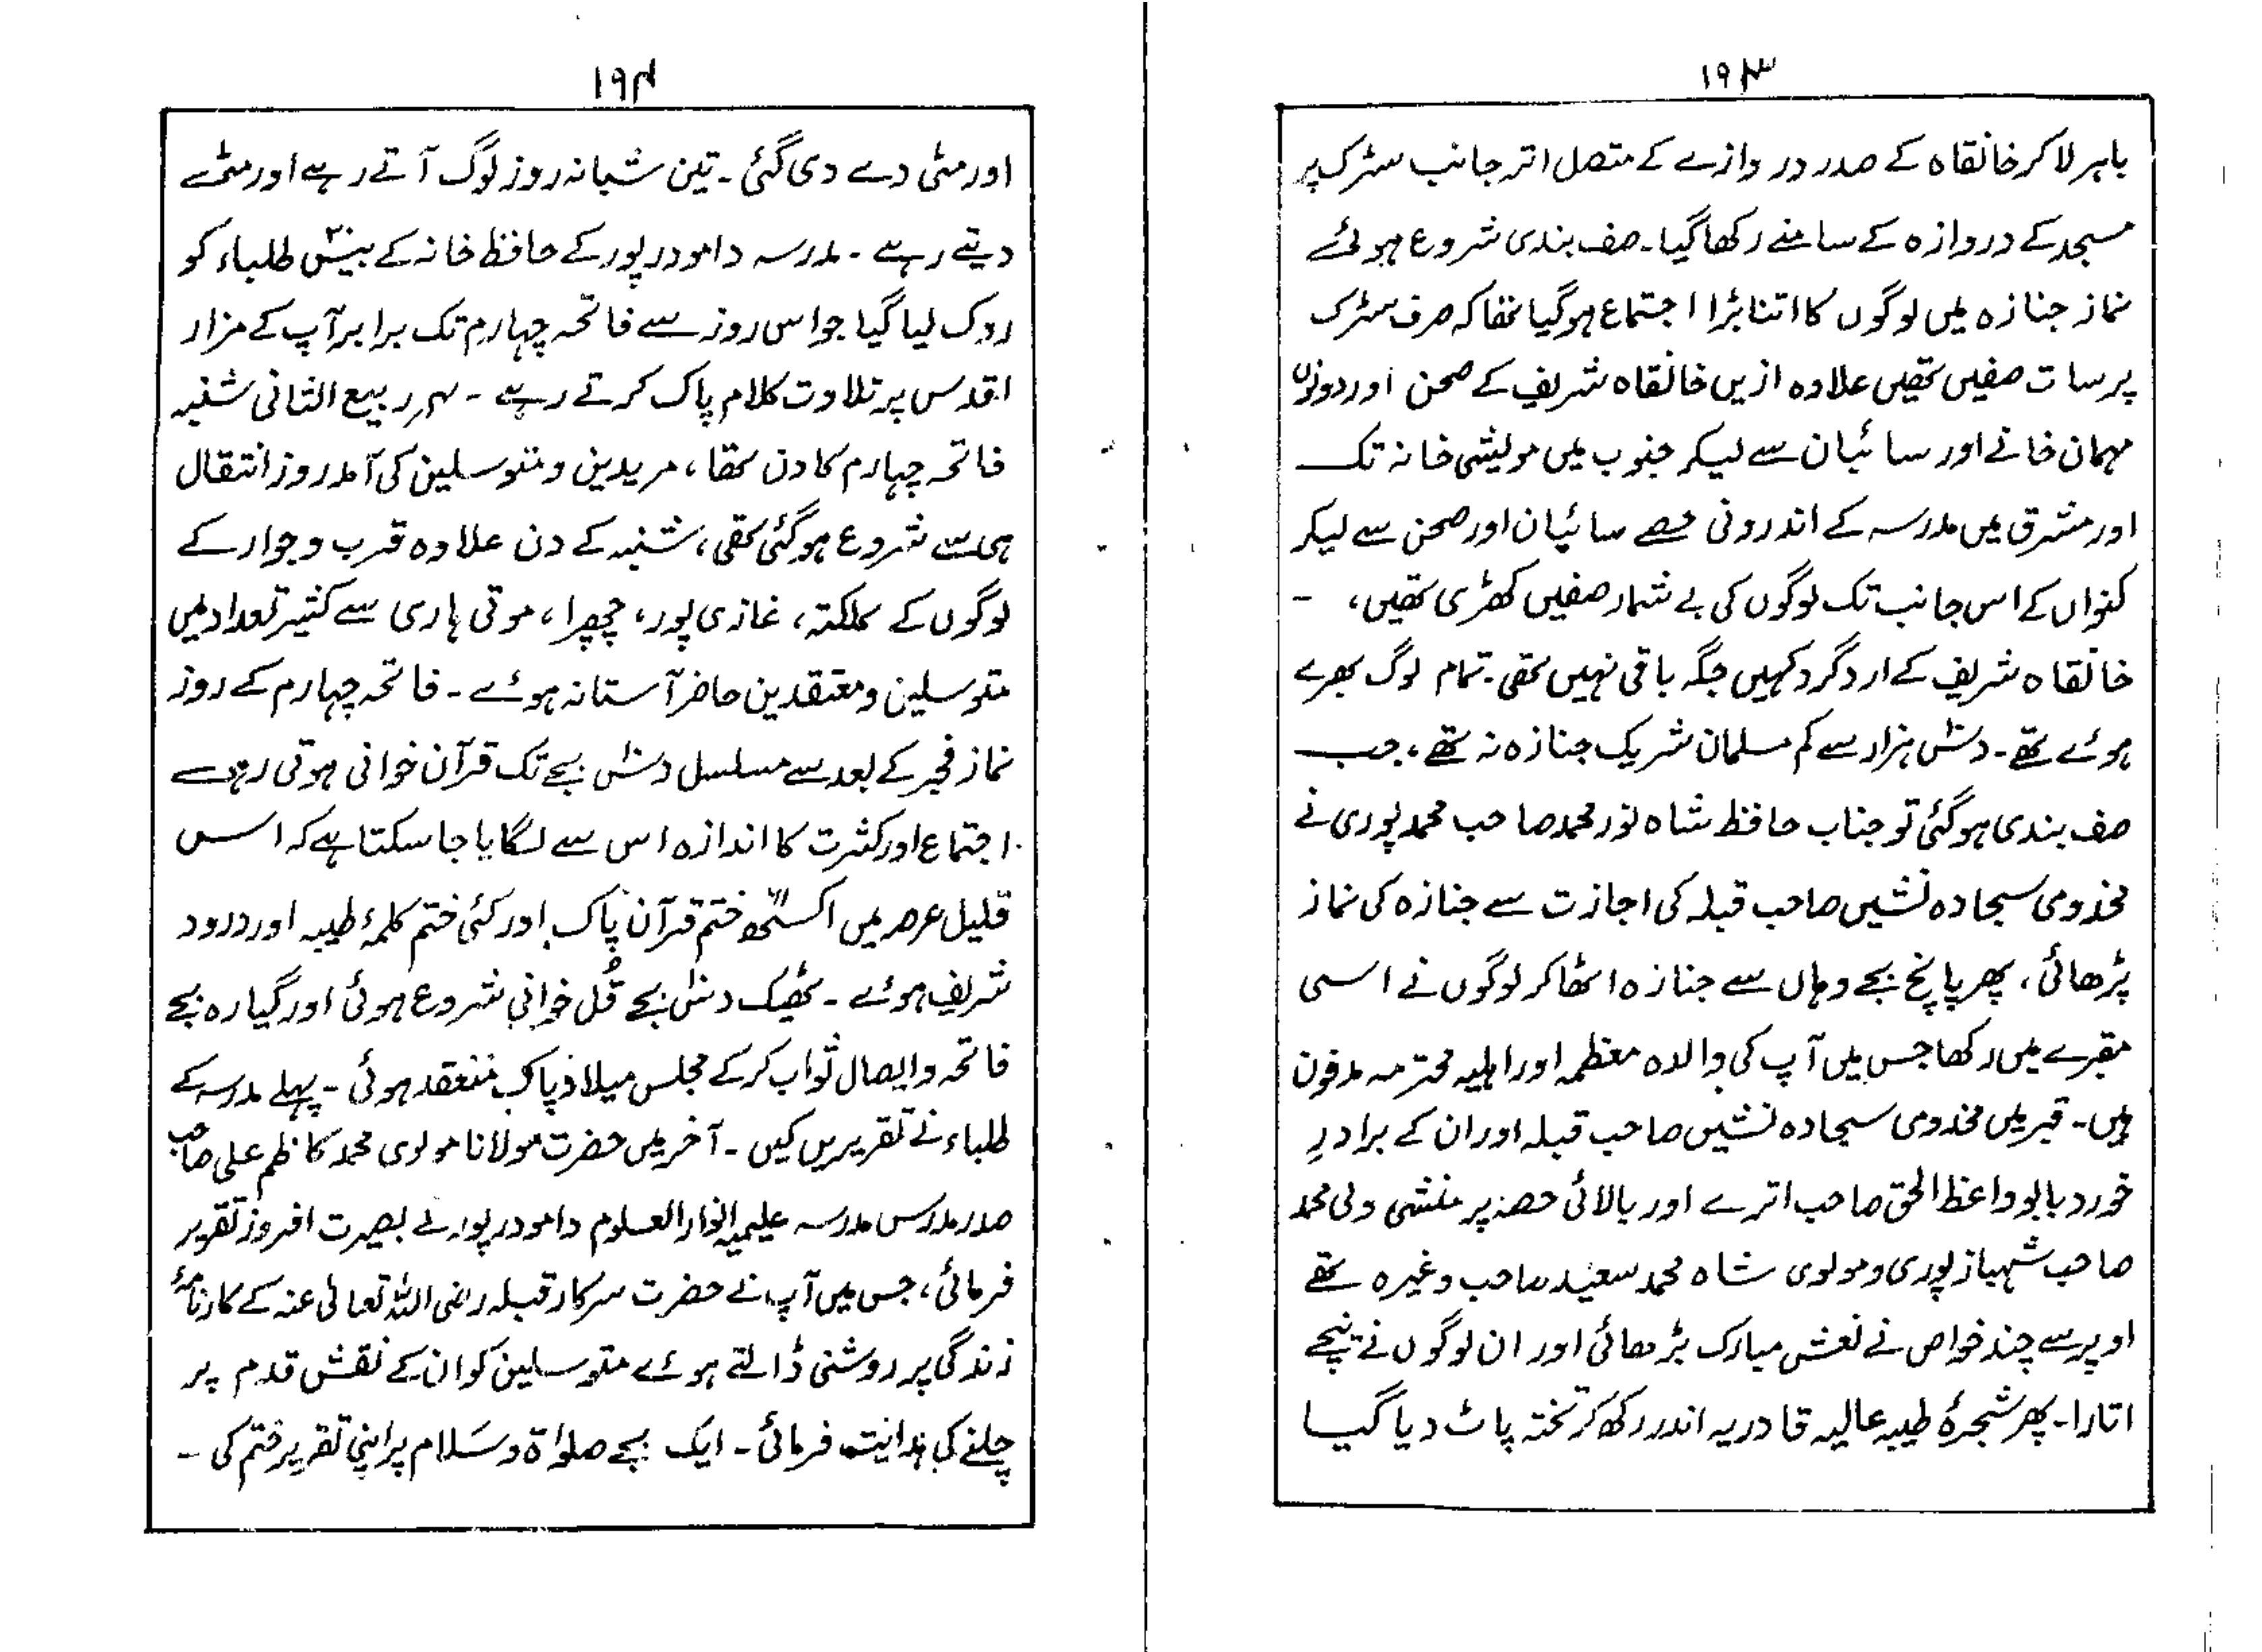 ۱۹۳
باہر لا کر خانقاہ کے صدر دروازے کے متصل اتر جانب سڑک پر
مسجد کے دروازہ کے سامنے رکھا گیا۔ صف بندی شروع ہوئے
نماز جنازہ میں لوگوں کا اتنا بڑا اجتماع ہوگیا تھا کہ صرف سڑک
پر سات صفیں تھیں علاوہ ازیں خانقاہ شریف کے صحن اور دونوں
مہمان خانے اور سائبان سے لیکر جنوب میں مویشی خانہ تک
اور مشرق میں مدرسہ کے اندرونی حصے سائبان اور صحن سے لیکر
کنواں کے اس جانب تک لوگوں کی بے شمار صفیں کھڑی تھیں، ۔
خانقاہ شریف کے ارد گرد کہیں جگہ باقی نہیں تھی۔ تمام لوگ بھرے
ہوئے تھے۔ دس ہزار سے کم مسلمان شریک جنازہ نہ تھے، جب
صف بندی ہوگئی تو جناب حافظ شاہ نور محمد صاحب محمد پوری نے
مخدومی سجادہ نشیں صاحب قبلہ کی اجازت سے جنازہ کی نماز
پڑھائی، پھر پانچ بجے وہاں سے جنازہ اٹھا کر لوگوں نے اسی
مقبرے میں رکھا جس میں آپ کی والدہ معظمہ اور اہلیہ محترمہ مدفون
ہیں۔ قبر میں مخدومی سجادہ نشیں صاحب قبلہ اور ان کے برادرِ
خورد بابو واعظ الحق صاحب اترے اور بالائی حصہ پر منشی ولی محمد
صاحب شہباز پوری و مولوی شاہ محمد سعید صاحب وغیرہ تھے
اوپر سے چند خواص نے نعش مبارک بڑھائی اور ان لوگوں نے نیچے
اتارا۔ پھر شجرۂ طیبہ عالیہ قادریہ اندر رکھ کر تختہ پاٹ دیا گیا
۱۹۴
اور مٹی دے دی گئی۔ تین شبانہ روز لوگ آتے رہے اور مٹی
دیتے رہے۔ مدرسہ دامودر پور کے حافظ خانہ کے بیس طلباء کو
روک لیا گیا جو اس روز سے فاتحہ چہارم تک برابر آپ کے مزار
اقدس پر تلاوت کلام پاک کرتے رہے۔ ۴؍ ربیع الثانی شنبہ
فاتحہ چہارم کا دن تھا، مریدین و متوسلین کی آمد روز انتقال
ہی سے شروع ہوگئی تھی، شنبہ کے دن علاوہ قرب و جوار کے
لوگوں کے کلکتہ، غازی پور، چھپرا، موتی ہاری سے کثیر تعداد میں
متوسلین و معتقدین حاضر آستانہ ہوئے۔ فاتحہ چہارم کے روز
نماز فجر کے بعد سے مسلسل دس بجے تک قرآن خوانی ہوتی رہے
اجتماع اور کثرت کا اندازہ اس سے لگایا جا سکتا ہے کہ اس
قلیل عرصہ میں اکسٹھ ختم قرآن پاک اور کئی ختم کلمۂ طیبہ اور درود
شریف ہوئے۔ ٹھیک دس بجے قُل خوانی شروع ہوئی اور گیارہ بجے
فاتحہ و ایصال ثواب کر کے مجلس میلاد پاک منعقد ہوئی۔ پہلے مدرسہ کے
طلباء نے تقریریں کیں۔ آخر میں حضرت مولانا مولوی محمد کاظم علی صاحب
صدر مدرس مدرسہ علیمیہ انوار العلوم دامودر پور نے بصیرت افروز تقریر
فرمائی، جس میں آپ نے حضرت سرکار قبلہ رضی اللہ تعالیٰ عنہ کے کارنامۂ
زندگی پر روشنی ڈالتے ہوئے متوسلین کو ان کے نقش قدم پر
چلنے کی ہدایت فرمائی۔ ایک بجے صلوٰۃ و سَلام پر اپنی تقریر ختم کی ۔